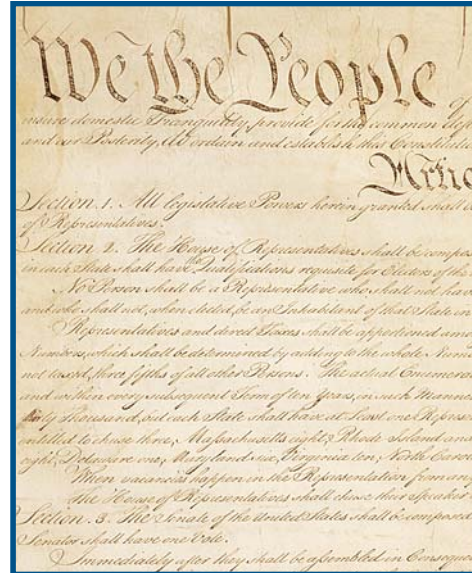 We the People of
insure domestic Tranquility, provide for the common def
and our Posterity, do ordain and establish this Constitutio
Artic
Section. 1. All legislative Powers herein granted shall b
of Representatives.
Section. 2. The House of Representatives shall be compos
in each State shall have the Qualifications requisite for Electors of the
No Person shall be a Representative who shall not have
and who shall not, when elected, be an Inhabitant of that State in
Representatives and direct Taxes shall be apportioned am
Numbers, which shall be determined by adding to the whole Num
not taxed, three fifths of all other Persons. The actual Enumera
and within every subsequent Term of ten Years, in such Manne
thirty Thousand, but each State shall have at Least one Repres
entitled to chuse three, Massachusetts eight, Rhode Island an
eight, Delaware one, Maryland six, Virginia ten, North Caro
When vacancies happen in the Representation from any
The House of Representatives shall chuse their Speaker
Section. 3. The Senate of the United States shall be composed
Senator shall have one Vote.
Immediately after they shall be assembled in Conseque